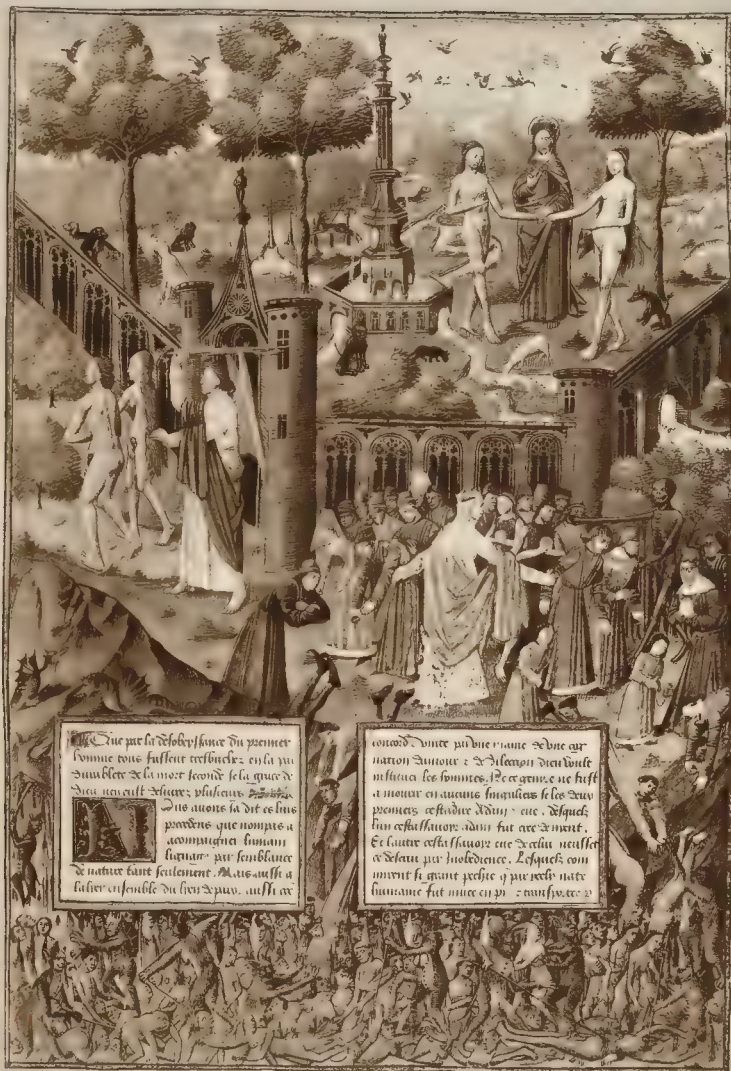 Que par la desobeyssance du premier
homme tous fussent tresbuchez en la par
durablete de la mort seconde se la grace de
dieu nen eust delivrez plusieurs
Nous avons ia dit es livres
precedens que non pas a
acompaignier lumain
lignage par semblance
de nature tant seulement. Mais aussi a
lalier ensemble du lien de paix. aussi
concord. Unite par une maniere de une
nation damour z de dilection dieu voult
instituer les hommes. Et ce genre ne fust
a mourir en aucuns singuliers se les deux
premiers cestadire Adam. eve. desquelz
lun cestassavoir adam fut cree de neant.
Et lautre cestassavoir eve de celui neussent
ce desservi par Inobedience. Lesquelz com
mirent si grant peche q par icelui nature
humaine fut muee en pis z transportee